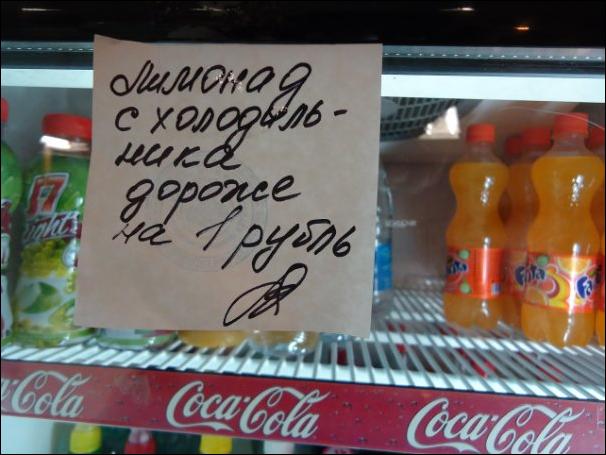 Лимонад
с холодиль-
ника
дороже
на 1 рубль
Light
Fanta
Coca-Cola
Coca-Cola
Coca-Cola